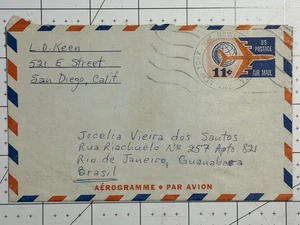 L.D. Keen
521 E Street
San Diego, Calif.
11¢
US POSTAGE
AIR MAIL
Jocelia Vieira dos Santos
Rua Riachuelo Nº 257 Apto. 821
Rio de Janeiro, Guanabara
Brasil
AÉROGRAMME • PAR AVION